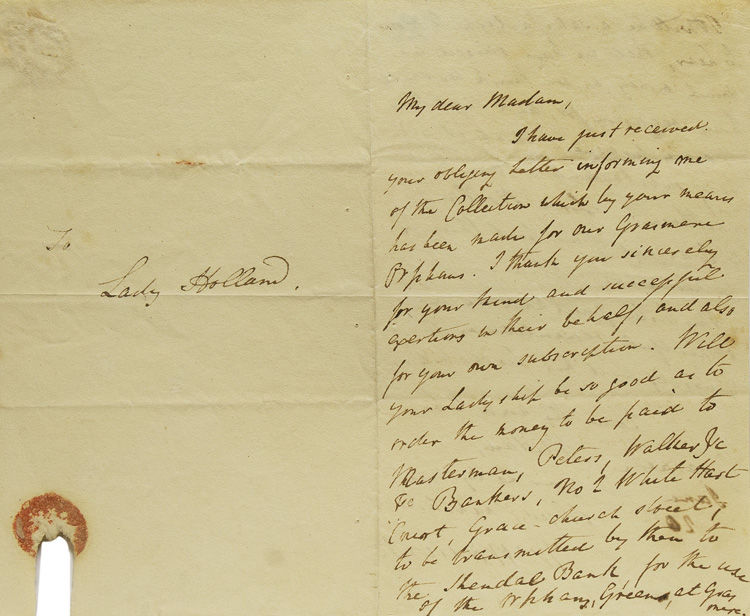 To
Lady Holland.
My dear Madam,
I have just received
your obliging Letter informing me
of the Collection which by your means
has been made for our Grasmere
Orphans. I thank you sincerely
for your kind and successful
exertions in their behalf, and also
for your own subscription. Will
your Ladyship be so good as to
order the money to be paid to
Masterman, Peters, Walker &c
&c Bankers, No 2 White Hart
Court, Grace-church street,
to be transmitted by them to
the Kendal Bank, for the use
of the Orphans, Greens, at Gras
mere.